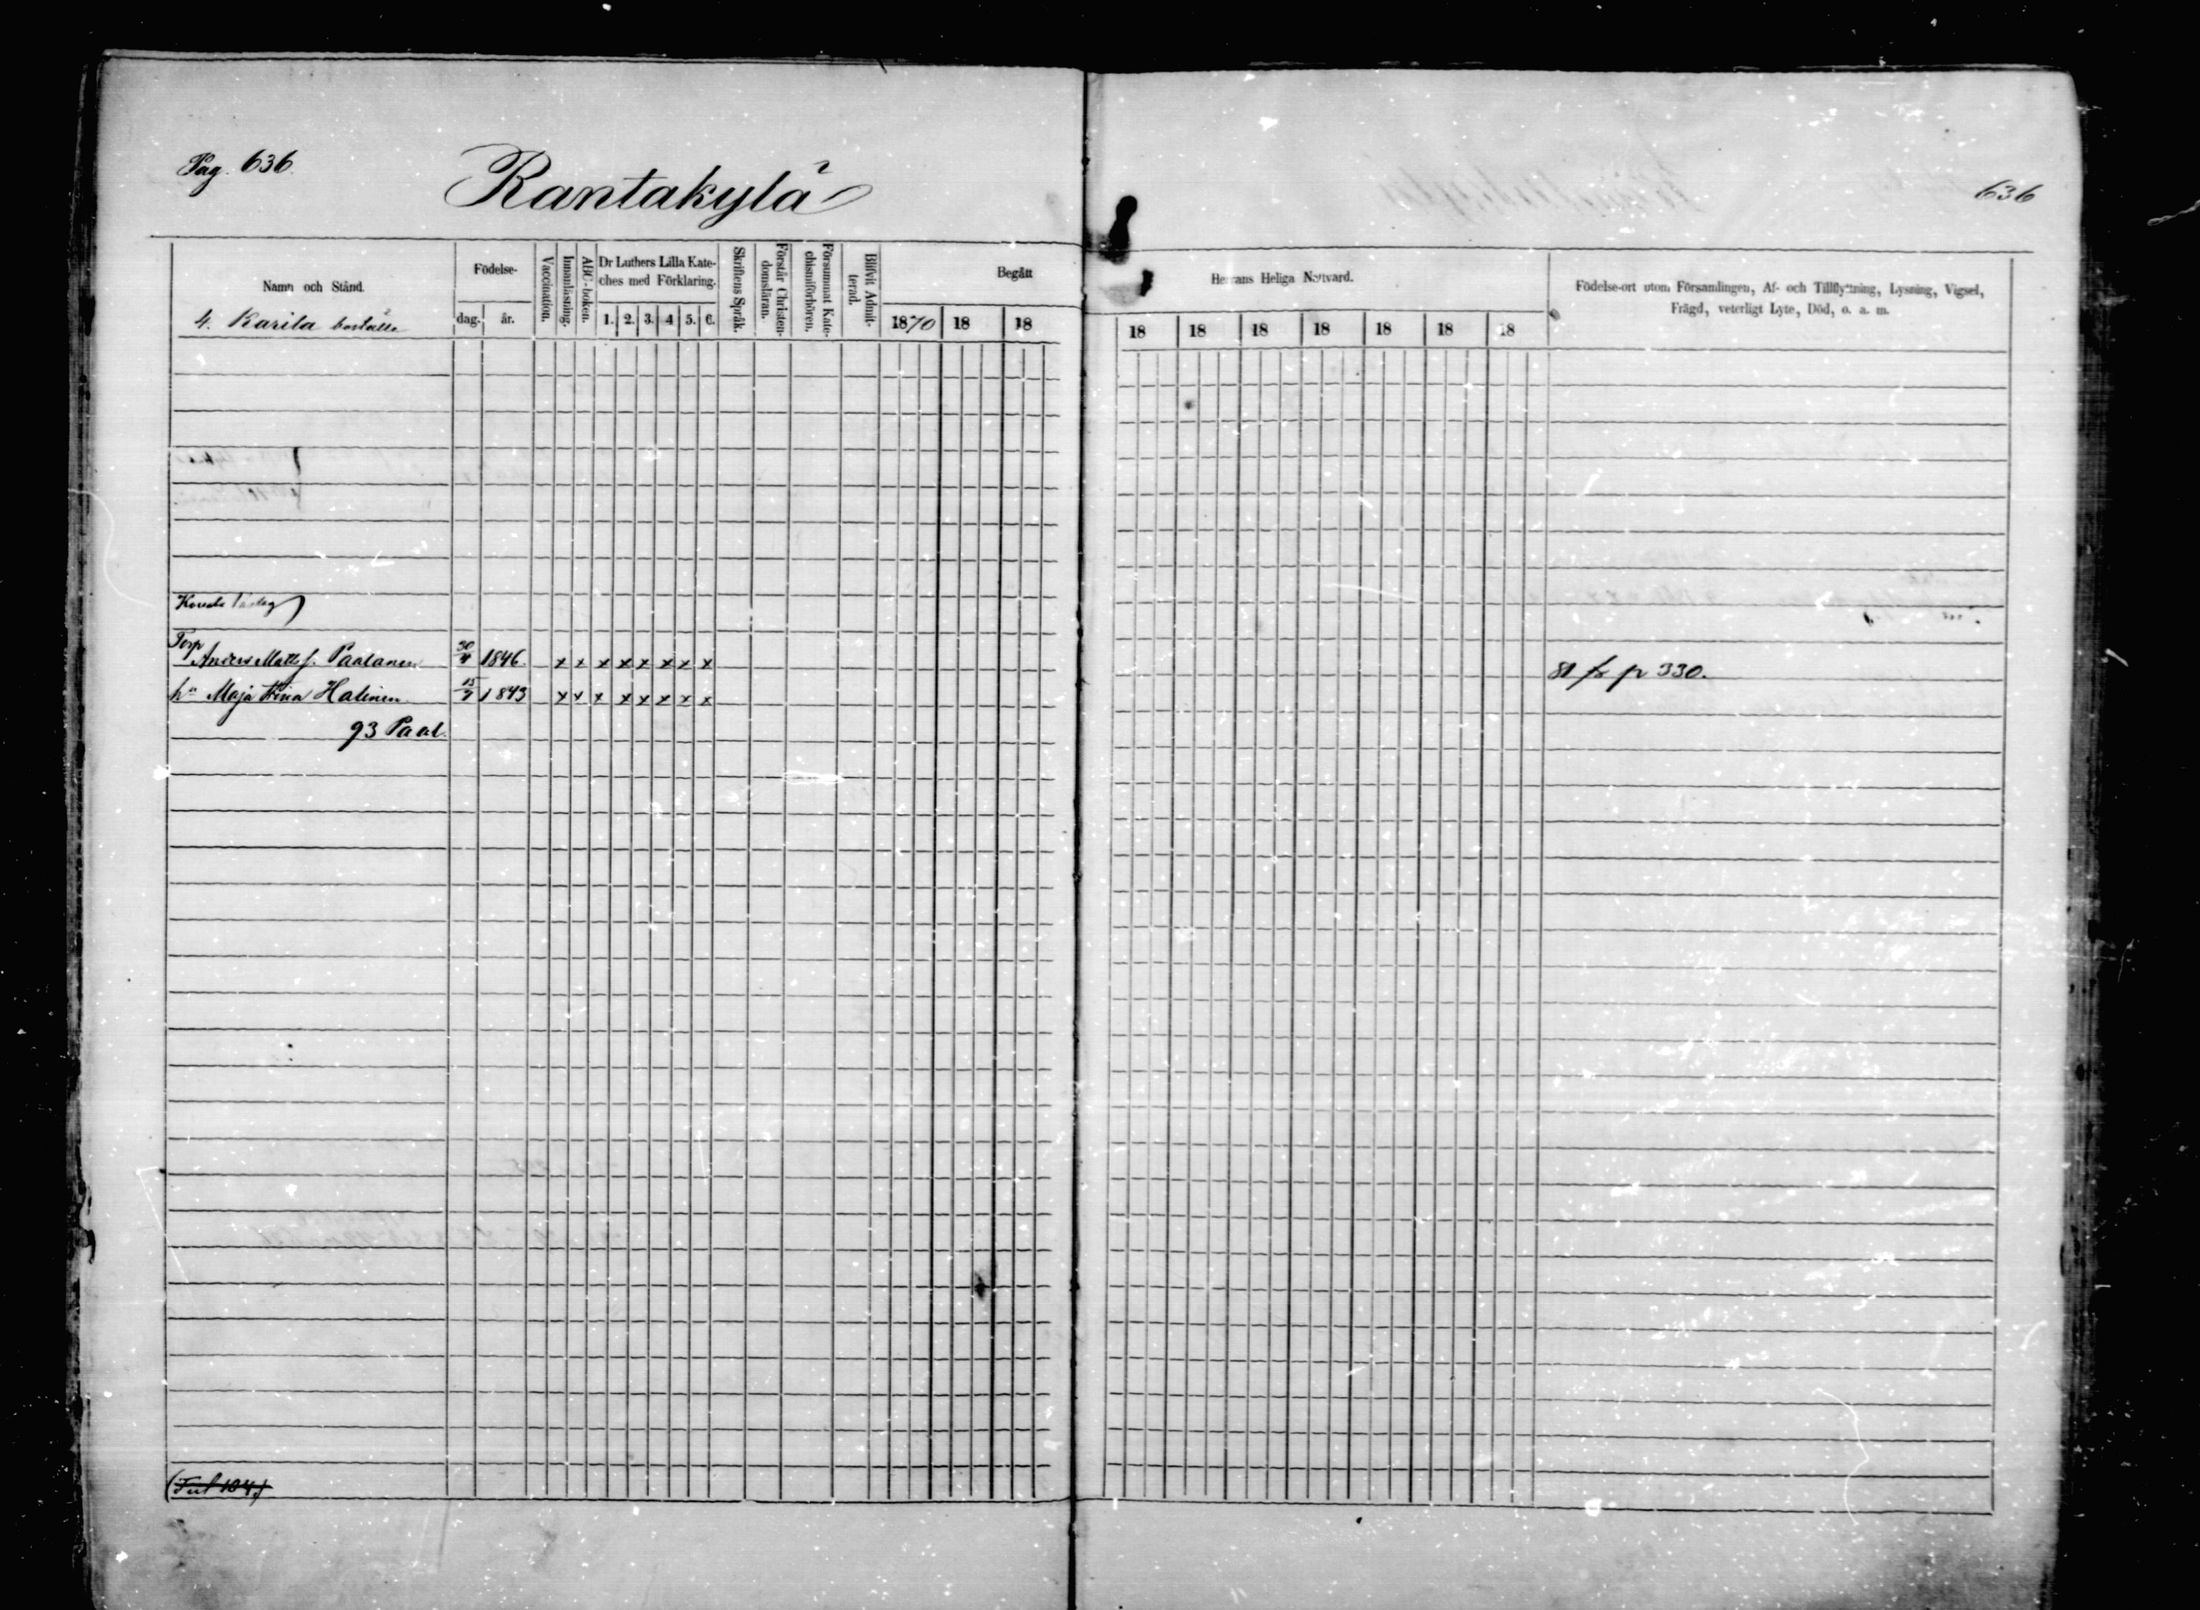 Pag. 636.
Rantakylä
636
Namn och Stånd.
4. Karila boställe
Födelse-
dag.
år.
Vaccination.
Innanläsning.
ABC-boken.
Dr Luthers Lilla Kate-
ches med Förklaring.
1. 2. 3. 4 5. 6.
Skriftens Språk.
Förstår Christen-
domsläran.
Försummat Kate-
chismiförhören.
Blifvit Admit-
terad.
Begått
1870 18 18
Herrans Heliga Nattvard.
18 18 18 18 18 18 18
Födelse-ort utom Församlingen, Af- och Tillflyttning, Lysning, Vigsel,
Frägd, veterligt Lyte, Död, o. a. m.
Torp
Anders Matts s. Paalanen 30/4 1846. x x x x x x x x 81 fr p 330.
hu Maja Stina Halinen 15/7 1843 x x x x x x x x
93 Paal.